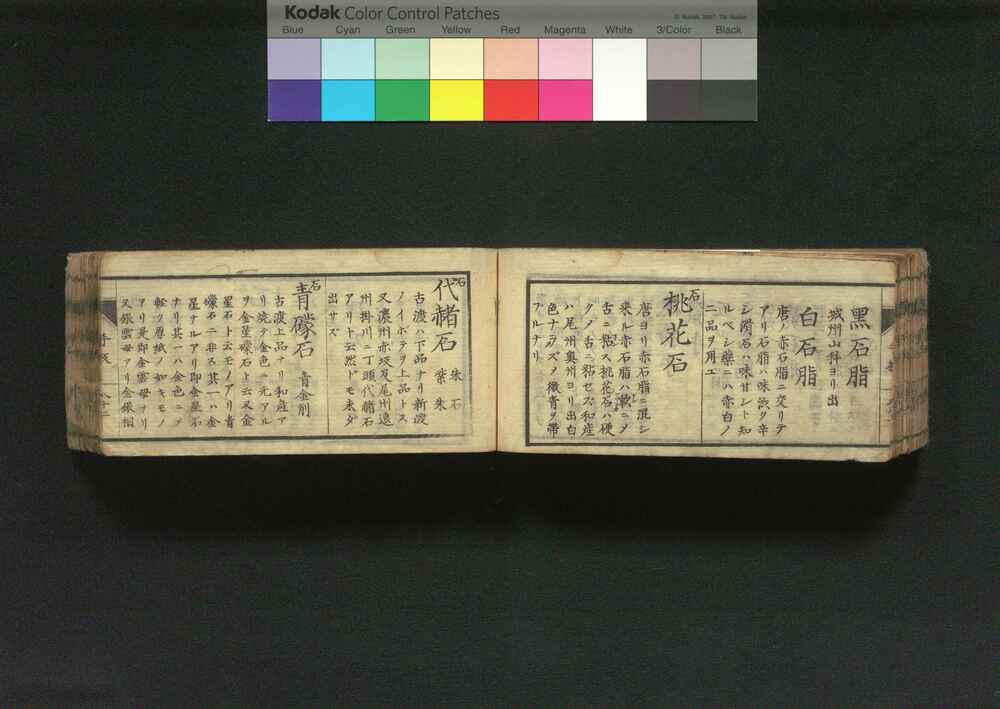 Kodak Color Control Patches
© Kodak, 2007, TM: Kodak
Blue Cyan Green Yellow Red Magenta White 3/Color Black
黒石脂
城州山科ヨリ出
白石脂
唐ノ赤石脂ニ交リテ
アリ石脂ハ味渋ク辛
シ滑石ハ味甘シト知
ルベシ藥ニハ赤白ノ
二品ヲ用ユ
石 桃花石
唐ヨリ赤石脂ニ混シ
来ル赤石脂ハ軟ニメ
舌ニ黏ス桃花石ハ硬
クメ舌ニ黏セズ和産
ハ尾州奥州ヨリ出白
色ナラズメ微青ヲ帯
ブルナリ
石 代赭石 朱石 紫朱
古渡ハ下品ナリ新渡
ノイボテヲ上品トス
又濃州赤坂及尾州遠
州掛川ニ丁頭代赭石
アリト云然ドモ未タ
出サズ
石 青礞石 青金削
古渡上品ナリ和産ア
リ焼テ金色ノ光アル
ヲ金星礞石ト云又金
星石ト云モノアリ青
礞石ニ非ス其一ハ金
星テルアリ即金星石
ナリ其一ハ金色ニメ
軽ク厚紙ノ如キモノ
ヲリ是即金雲母ナリ
又銀雲母アリ金銀細